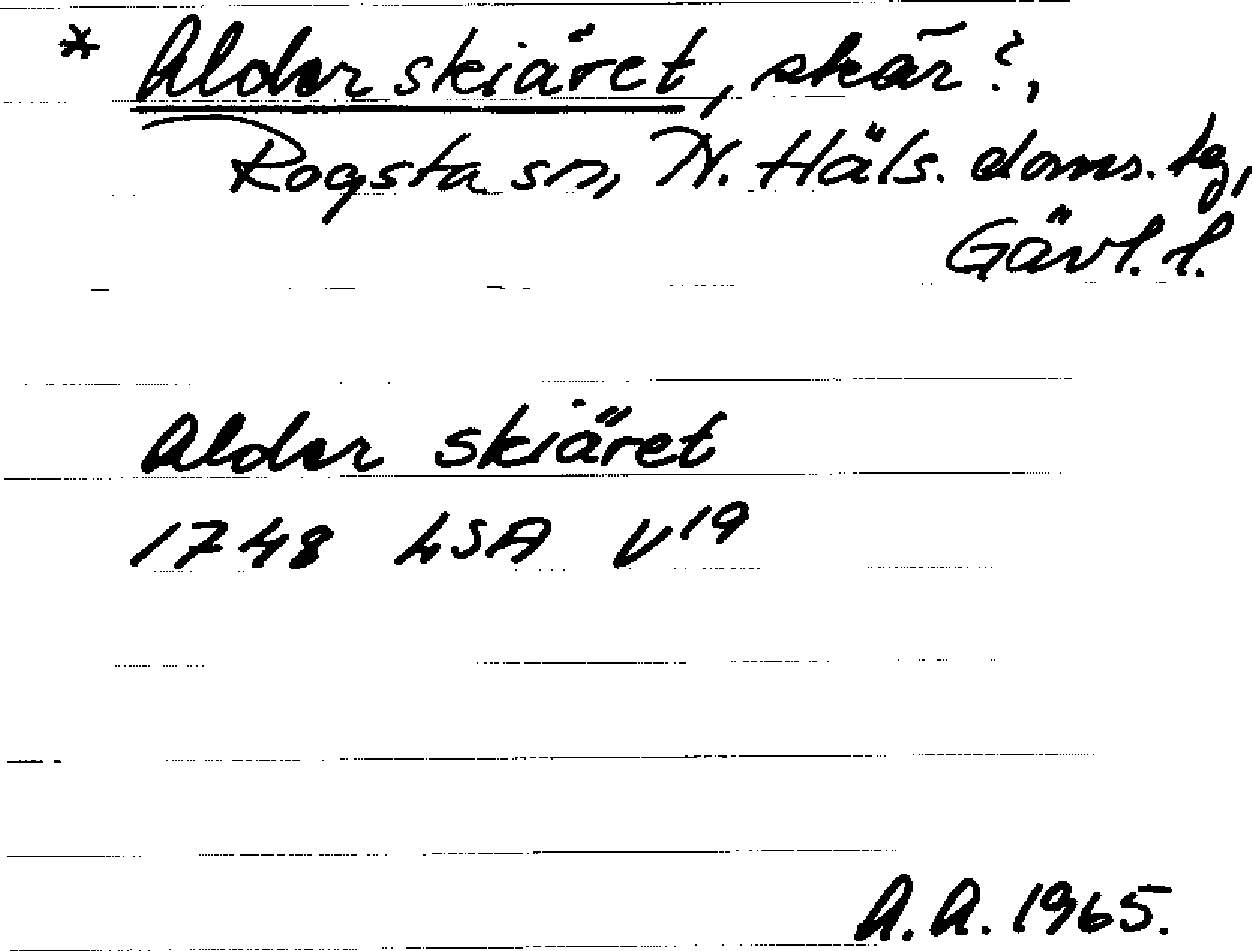 * Alder skiäret, skär?,
Rogsta sn, N. Häls. doms. tg,
Gävl. l.
Alder skiäret
1748 LSA V19
A.A. 1965.